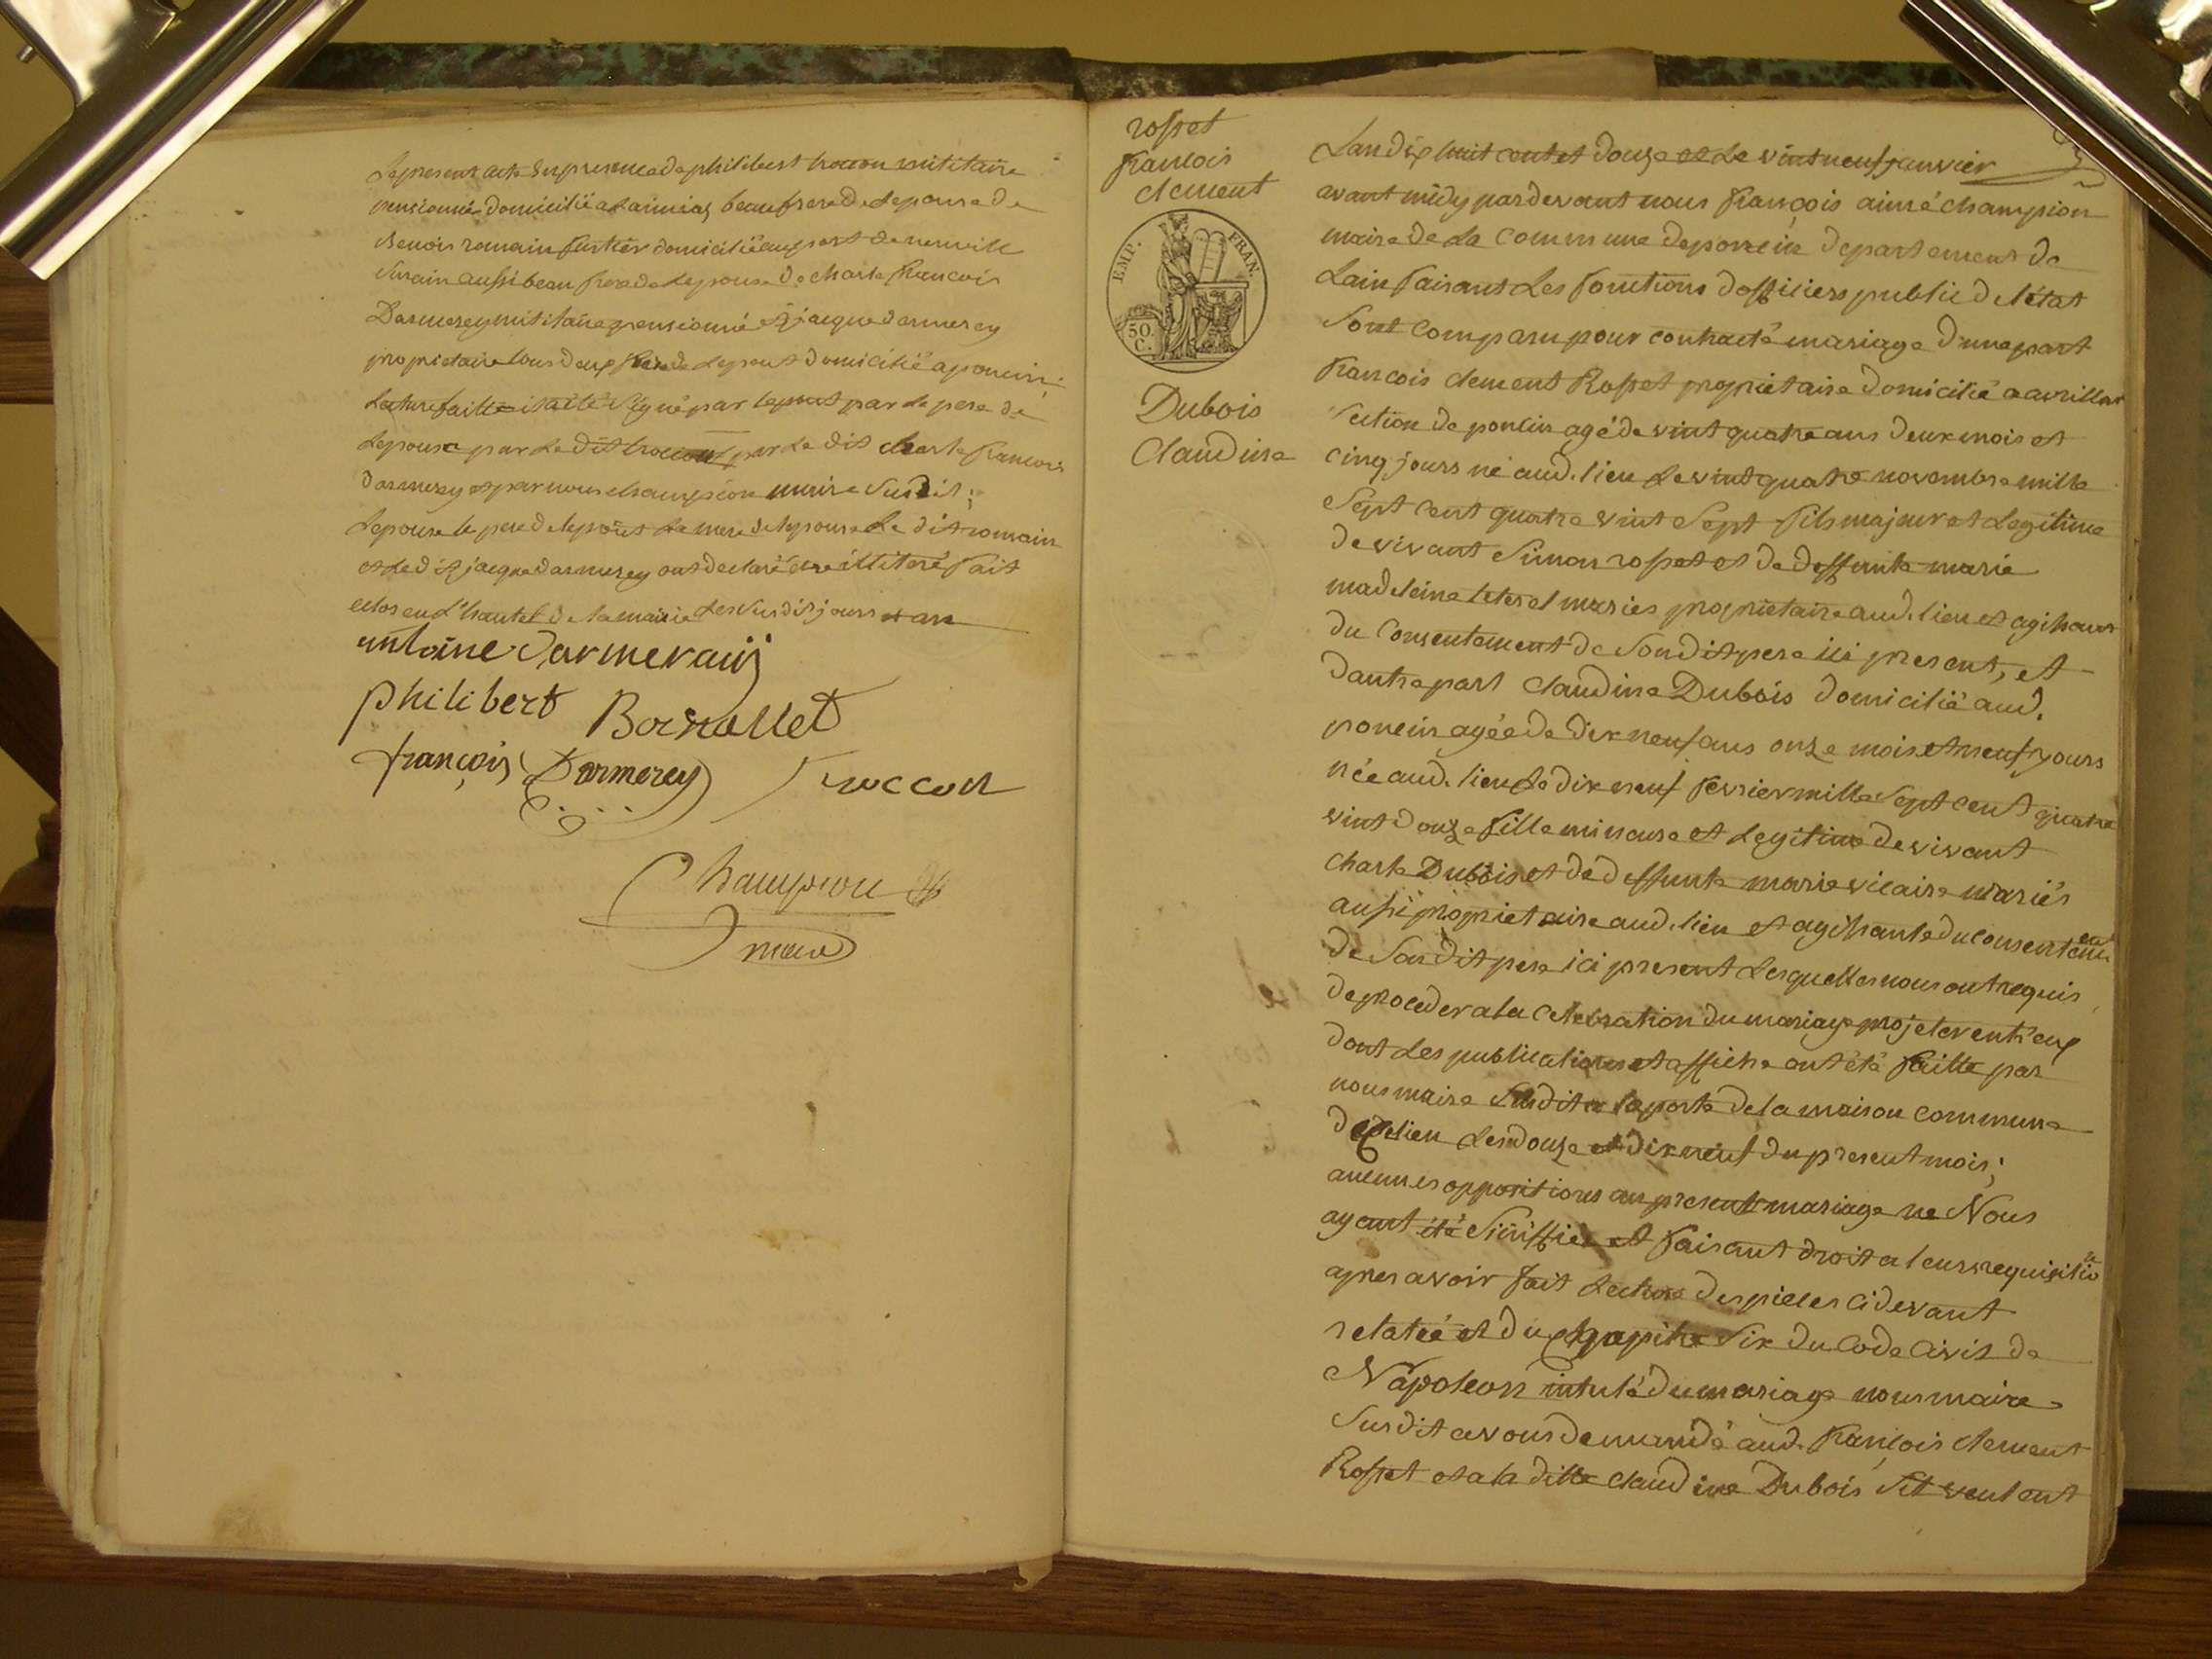 Le present acte En presence de philibert trocon militaire
pensionné domicilié a beaufrere de Lepouse de
Benois romain domicilié au port de neuville
Surain aussi beau frere de Lepouse de charle francois
Darmerey militaire pensionné Et jacque darmerey
propriétaire tous deux frere de Lepout domicilié a poncin
Lecture faitte il a été Signé par Lepout par Le pere de
Lepouse par Le dit trocont par Le dit charle francois
darmerey et par nous champion maire Susdit ;
Lepouse le pere de lepout La mere de lepouse Le dit romain
et Le dit jacque darmerey ont declaré être illitéré fait
clos en L'hautel de la mairie Les Susdits jours et an
antoine darmeraÿ
philibert Bornallet
françois Darmerey Troccon
Champion
maire
rosset
francois
clement
EMP. FRAN.
50.
C.
Dubois
Claudine
Lan dix huit cent et douze et Le vint neuf janvier
avant midy pardevant nous françois aimé champion
maire de La commune de poncin departement de
Lain faisant Les fonctions dofficiers public de létat
Sont comparu pour contracté mariage dune part
francois clement Rosset propriétaire domicilié a avrillat
Section de poncin agé de vint quatre ans deux mois et
cinq jours né aud. lieu Le vint quatre novembre mille
Sept cent quatre vint Sept fils majeur et Legitime
de vivant Simon rosset et de deffunte marie
madeleine mariés propriétaire aud. lieu et agissant
du consentement de Son dit pere ici present, et
dautre part claudine Dubois domicilié aud.
poncin agée de dix neuf ans onze mois et neuf jours
née aud. lieu Le dix neuf fevrier mille Sept cent quatre
vint douze fille mineure et Legitime de vivant
charle Dubois et de deffunte marie vicaire mariés
aussi propriétaire aud. lieu et agissante du consentement
de Son dit pere ici present Lesquelles nous ont requis
de proceder a la celebration du mariage projeter entr'eux
dont Les publications et affiche ont été faitte par
nous maire Susdit a la porte de la maison commune
de ce lieu Les douze et dix neuf du present mois ;
aucunes oppositions au present mariage ne Nous
ayant été Siniffiée et faisant droit a leurs requisitio
apres avoir fait Lecture des pieces ci devant
relatéé et du chapitre Six du Code Civil de
Napoleon intulé du mariage nous maire
Susdit avons demandé aud. françois clement
Rosset et a la ditte claudine Dubois Sil veulent